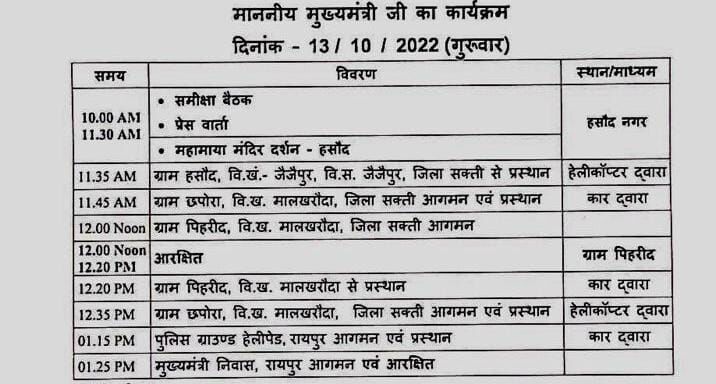 माननीय मुख्यमंत्री जी का कार्यक्रम
दिनांक - 13 / 10 / 2022 (गुरूवार)
समय विवरण स्थान/माध्यम
10.00 AM
11.30 AM
• समीक्षा बैठक
• प्रेस वार्ता
• महामाया मंदिर दर्शन - हसौद
हसौद नगर
11.35 AM ग्राम हसौद, वि.खं.- जैजैपुर, वि.स. जैजैपुर, जिला सक्ती से प्रस्थान हेलीकॉप्टर द्वारा
11.45 AM ग्राम छपोरा, वि.ख. मालखरौदा, जिला सक्ती आगमन एवं प्रस्थान कार द्वारा
12.00 Noon ग्राम पिहरीद, वि.ख. मालखरौदा, जिला सक्ती आगमन
12.00 Noon
12.20 PM
आरक्षित ग्राम पिहरीद
12.20 PM ग्राम पिहरीद, वि.ख. मालखरौदा से प्रस्थान कार द्वारा
12.35 PM ग्राम छपोरा, वि.ख. मालखरौदा, जिला सक्ती आगमन एवं प्रस्थान हेलीकॉप्टर द्वारा
01.15 PM पुलिस ग्राउण्ड हेलीपेड, रायपुर आगमन एवं प्रस्थान कार द्वारा
01.25 PM मुख्यमंत्री निवास, रायपुर आगमन एवं आरक्षित